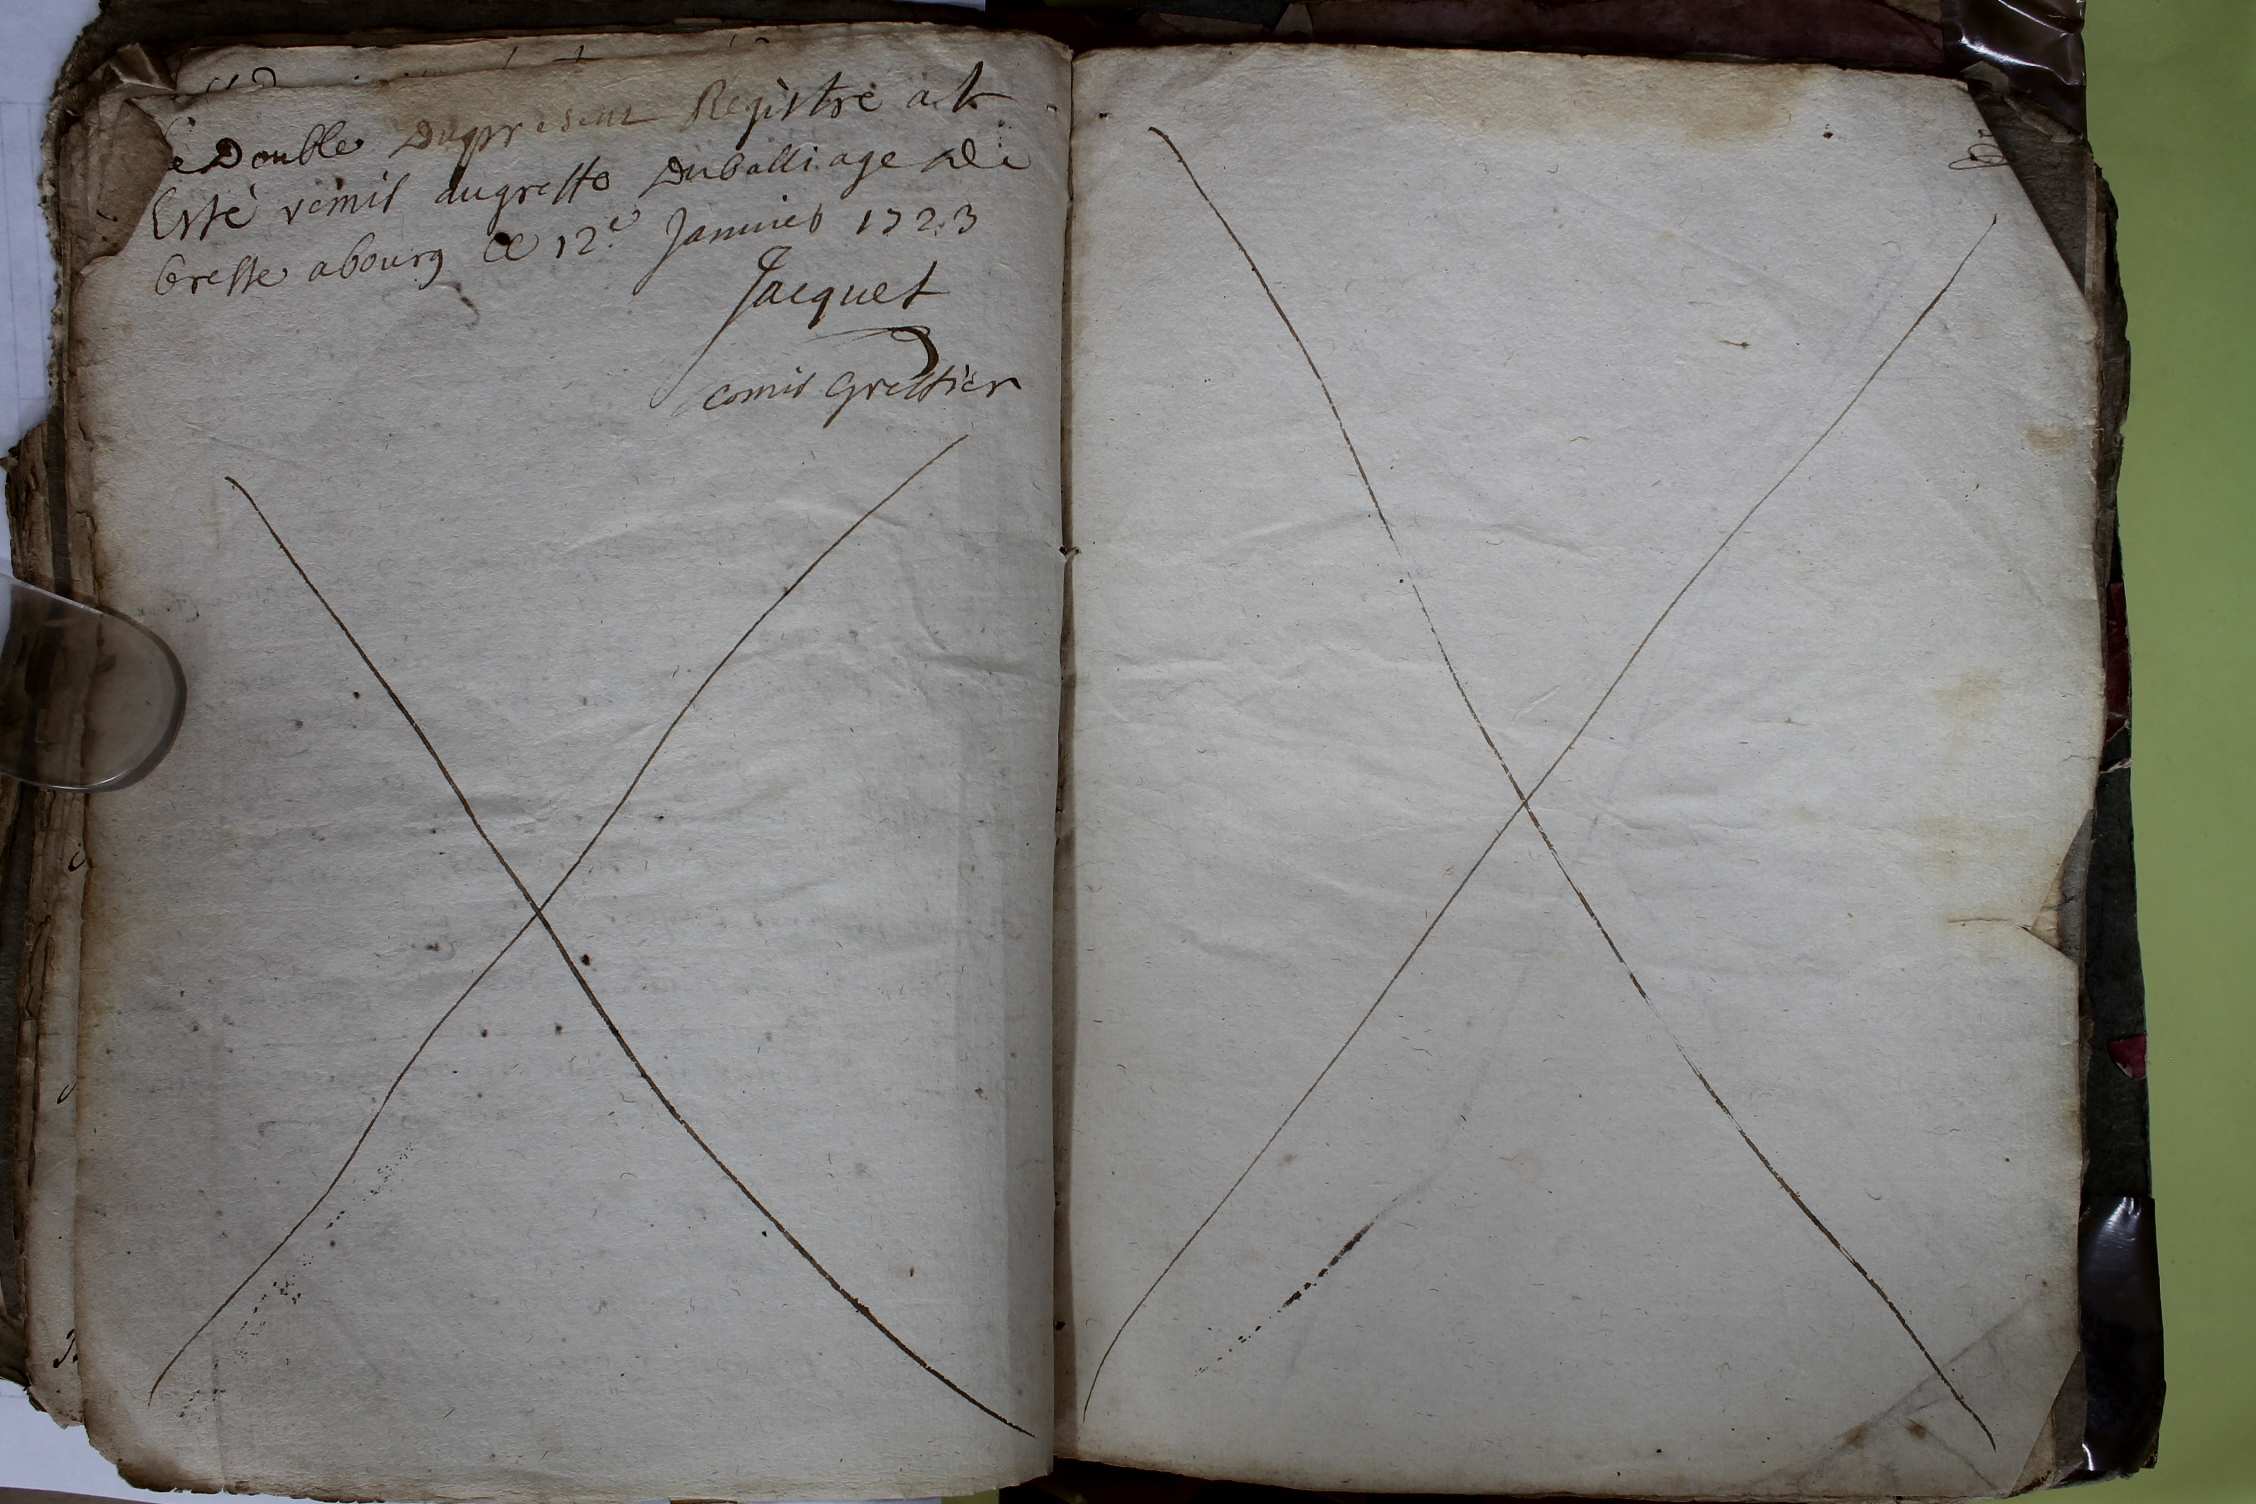 Le Double Dupresent Registre at
Esté remis augreffe Duballiage de
bresse abourg Ce 12e Janvier 1723
Jacquet
comis Greffier